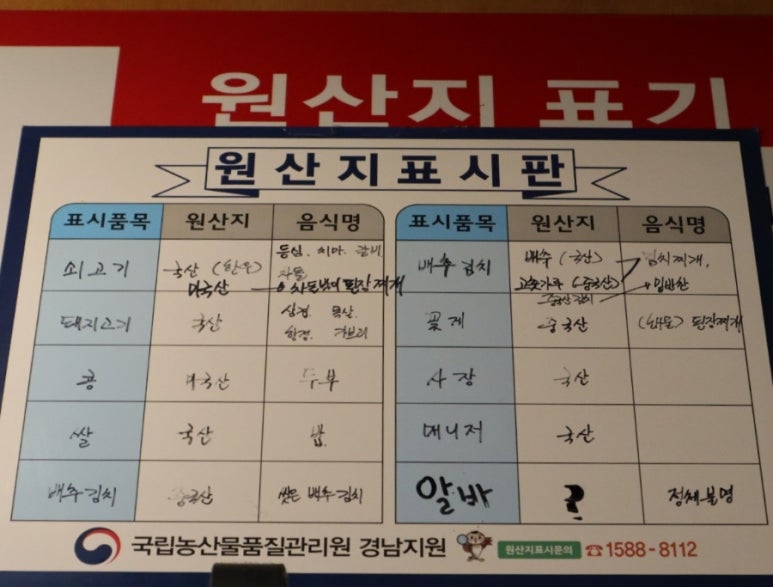 원산지 표기
원산지표시판
표시품목 원산지 음식명
쇠고기 국산 (한우) 등심. 치마. 갈비
차돌
미국산 → 차돌박이 된장찌개
돼지고기 국산 삼겹. 목살.
항정.
콩 미국산 두부
쌀 국산 밥
배추김치 중국산 씻은 백추김치
표시품목 원산지 음식명
배추김치 배추 (국산) 김치찌개,
고춧가루 (중국산) 밑반찬
중국산 김치
꽃게 중국산 (해물) 된장찌개
사장 국산
매니저 국산
알바 ? 정체불명
국립농산물품질관리원 경남지원 원산지표시문의 ☎1588-8112